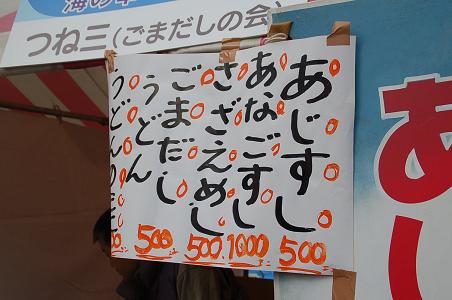 つね三(ごまだしの会)
あじすし
500
あなごすし
1000
さざえめし
500
ごまだし
うどん
500
うどんの
あ